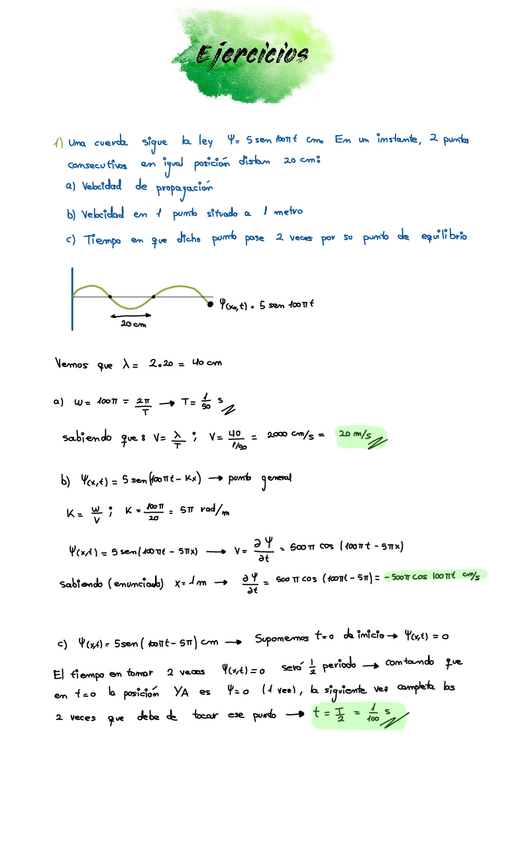 Ejercicios
1) Una cuerda sigue la ley Ψ= 5 sen 100πt cm. En un instante, 2 puntos
consecutivos en igual posición distan 20 cm:
a) Velocidad de propagación
b) Velocidad en 1 punto situado a 1 metro
c) Tiempo en que dicho punto pase 2 veces por su punto de equilibrio
Ψ(x₀,t) = 5 sen 100πt
20 cm
Vemos que λ = 2·20 = 40 cm
a) ω = 100π = 2π/T → T = 1/50 s
sabiendo que: V = λ/T ; V = 40/(1/50) = 2000 cm/s = 20 m/s
b) Ψ(x,t) = 5 sen(100πt - Kx) → punto general
K = ω/V ; K = 100π/20 = 5π rad/m
Ψ(x,t) = 5 sen(100πt - 5πx) → V = ∂Ψ/∂t = 500π cos (100πt - 5πx)
sabiendo (enunciado) x = 1m → ∂Ψ/∂t = 500π cos (100πt - 5π) = -500π cos 100πt cm/s
c) Ψ(x,t) = 5sen(100πt - 5π) cm → Suponemos t=0 de inicio → Ψ(x,t) = 0
El tiempo en tomar 2 veces Ψ(x,t)=0 será 1/2 periodo → contando que
en t=0 la posición YA es Ψ=0 (1 vez), la siguiente vez completa las
2 veces que debe de tocar ese punto → t = T/2 = 1/100 s